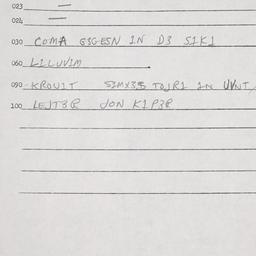 023 —
024 —
030 COMA G3GESN IN D3 S1K1
060 L1LUV1M
090 KROUIT S1MX3S TOJR1 IN UVNT,
100 LEJT3R JON K1P3R